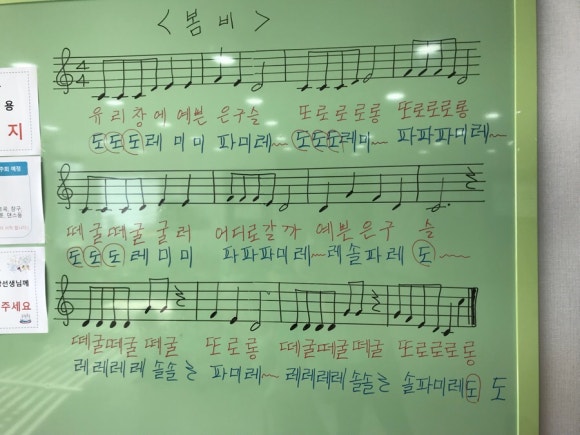 <봄 비>
유리창에 예쁜 은구슬 또로로로롱 또로로로롱
도도도레 미미 파미레~ 도도도레미~ 파파파미레~
떼굴떼굴 굴러 어디로갈까 예쁜은구 슬
도도도레미미 파파파미레~ 레솔파레 도~
떼굴떼굴 떼굴 또로롱 떼굴떼굴떼굴 또로로로롱
레레레레 솔솔 파미레~ 레레레레솔솔 솔파미레도 도
용
지
선생님께
주세요